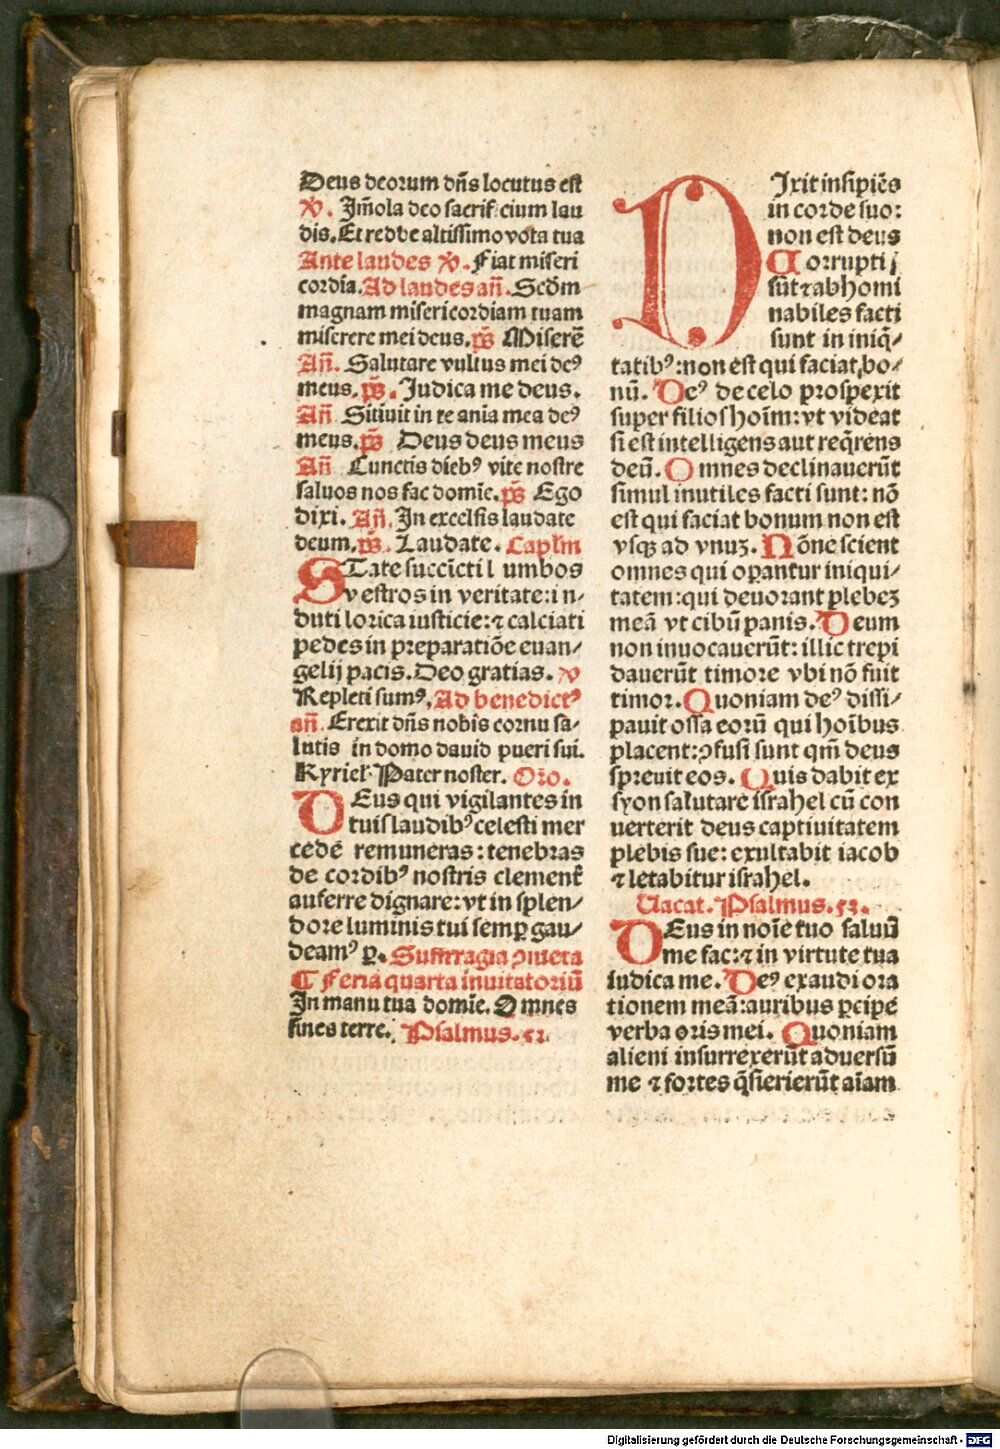 Deus deorum dn̄s locutus est
℣. Jm̄ola deo sacrificium lau
dis. Et redde altissimo vota tua
Ante laudes ℣. Fiat miseri
cordia. Ad laudes an̄. Scd̄m
magnam misericordiam tuam
miserere mei deus. ps̄ Miserē
An̄. Salutare vultus mei deꝰ
meus. ps̄. Judica me deus.
An̄ Sitiuit in te ania mea deꝰ
meus. ps̄ Deus deus meus
An̄ Cunctis diebꝰ vite nostre
saluos nos fac domīe. ps̄ Ego
dixi. An̄. In excelsis laudate
deum. ps̄. Laudate. Caplm̄
STate succincti l umbos
v estros in veritate: i n⸗
duti lorica iusticie: ⁊ calciati
pedes in preparatiōe euan⸗
gelij pacis. Deo gratias. ℣
Repleti sumꝰ. Ad benedictꝰ
an̄. Erexit dn̄s nobis cornu sa⸗
lutis in domo dauid pueri sui.
Kyriel. Pater noster. Oro.
DEus qui vigilantes in
tuis laudibꝰ celesti mer
cedē remuneras: tenebras
de cordibꝰ nostris clement̄
auferre dignare: vt in splen⸗
dore luminis tui semꝑ gau⸗
deamꝰ ꝑ. Suffragia ꝯsueta
¶ Feria quarta inuitatoriū
In manu tua domīe. Omnes
fines terre. Psalmus. 52.
DIxit insipiēs
in corde suo:
non est deus
Corrupti j
sūt ⁊ abhomi
nabiles facti
sunt in iniq̄⸗
tatibꝰ: non est qui faciat bo⸗
nū. Deꝰ de celo prospexit
super filios hoīm: vt videat
si est intelligens aut req̄rens
deū. Omnes declinauerūt
simul inutiles facti sunt: nō
est qui faciat bonum non est
vsqꝫ ad vnuꝫ. Nōne scient
omnes qui oꝑantur iniqui⸗
tatem: qui deuorant plebeꝫ
meā vt cibū panis. Deum
non inuocauerūt: illic trepi
dauerūt timore vbi nō fuit
timor. Quoniam deꝰ dissi⸗
pauit ossa eorū qui hoībus
placent: ꝯfusi sunt qm̄ deus
spreuit eos. Quis dabit ex
syon salutare israhel cū con
uerterit deus captiuitatem
plebis sue: exultabit iacob
⁊ letabitur israhel.
Uacat. Psalmus. 53.
DEus in noīe tuo saluū
me fac: ⁊ in virtute tua
iudica me. Deꝰ exaudi ora
tionem meā: auribus ꝑcipe
verba oris mei. Quoniam
alieni insurrexerūt aduersū
me ⁊ fortes q̄sierierūt aīam
Digitalisierung gefördert durch die Deutsche Forschungsgemeinschaft - DFG